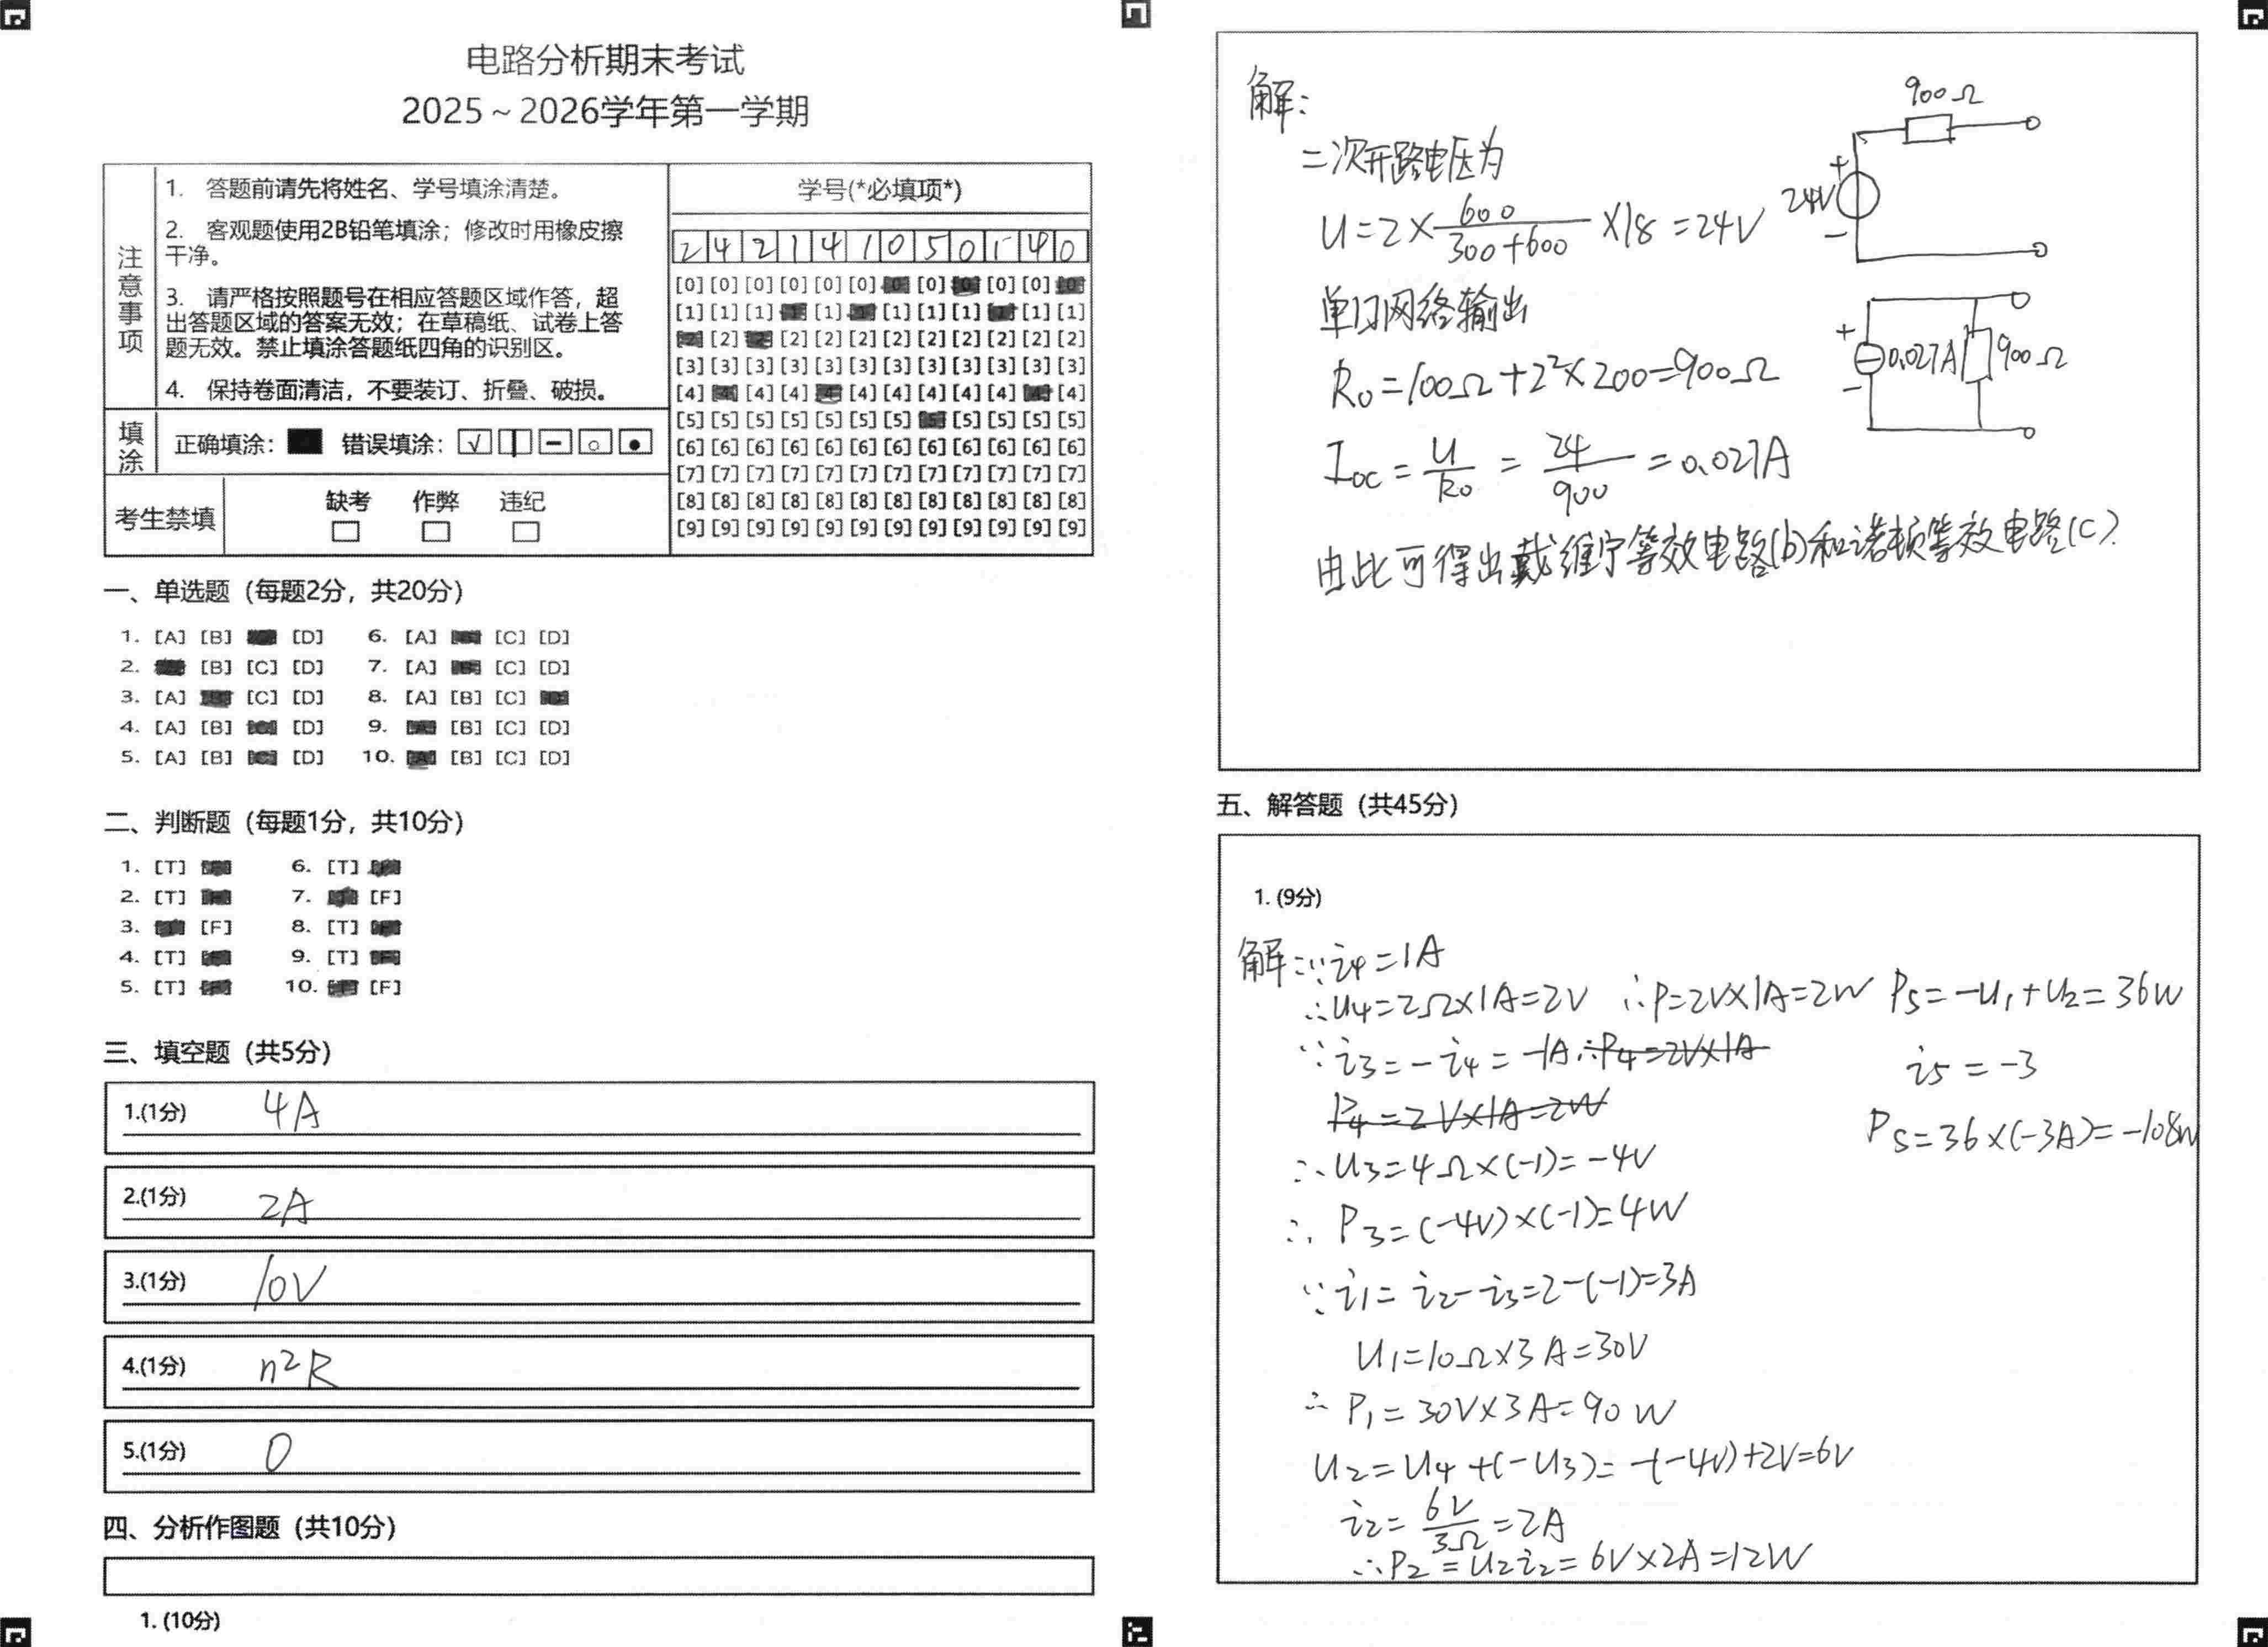 电路分析期末考试
2025～2026学年第一学期
注意事项
1. 答题前请先将姓名、学号填涂清楚。
2. 客观题使用2B铅笔填涂；修改时用橡皮擦
干净。
3. 请严格按照题号在相应答题区域作答，超
出答题区域的答案无效；在草稿纸、试卷上答
题无效。禁止填涂答题纸四角的识别区。
4. 保持卷面清洁，不要装订、折叠、破损。
填涂
正确填涂： 错误填涂：
考生禁填
缺考 作弊 违纪
学号(*必填项*)
2 4 2 1 4 1 0 5 0 1 4 0
[0] [0] [0] [0] [0] [0] [0] [0] [0] [0]
[1] [1] [1] [1] [1] [1] [1] [1] [1]
[2] [2] [2] [2] [2] [2] [2] [2] [2] [2]
[3] [3] [3] [3] [3] [3] [3] [3] [3] [3] [3] [3]
[4] [4] [4] [4] [4] [4] [4] [4] [4] [4]
[5] [5] [5] [5] [5] [5] [5] [5] [5] [5] [5] [5]
[6] [6] [6] [6] [6] [6] [6] [6] [6] [6] [6] [6]
[7] [7] [7] [7] [7] [7] [7] [7] [7] [7] [7] [7]
[8] [8] [8] [8] [8] [8] [8] [8] [8] [8] [8] [8]
[9] [9] [9] [9] [9] [9] [9] [9] [9] [9] [9] [9]
一、单选题（每题2分，共20分）
1. [A] [B] [D] 6. [A] [C] [D]
2. [B] [C] [D] 7. [A] [C] [D]
3. [A] [C] [D] 8. [A] [B] [C]
4. [A] [B] [C] [D] 9. [B] [C] [D]
5. [A] [B] [C] [D] 10. [A] [B] [C] [D]
二、判断题（每题1分，共10分）
1. [T] 6. [T]
2. [T] 7. [F]
3. [F] 8. [T]
4. [T] 9. [T]
5. [T] 10. [F]
三、填空题（共5分）
1.(1分) 4A
2.(1分) 2A
3.(1分) 10V
4.(1分) n²R
5.(1分) 0
四、分析作图题（共10分）
1. (10分)
解：
二次开路电压为
U=2×600/(300+600)×18=24V
单口网络输出
R₀=100Ω+2²×200=900Ω
Ioc=U/R₀=24/900=0.027A
由此可得出戴维宁等效电路(b)和诺顿等效电路(c).
900Ω
+
24V
−
+
0.027A 900Ω
−
五、解答题（共45分）
1. (9分)
解：∵i₄=1A
∴U₄=2Ω×1A=2V ∴P=2V×1A=2W
∵i₃=-i₄=-1A ∴P₄=2V×1A
P₄=2V×1A=2W
∴U₃=4Ω×(-1)=-4V
∴P₃=(-4V)×(-1)=4W
∵i₁=i₂-i₃=2-(-1)=3A
U₁=10Ω×3A=30V
∴P₁=30V×3A=90W
U₂=U₄+(-U₃)=-(-4V)+2V=6V
i₂=6V/3Ω=2A
∴P₂=U₂i₂=6V×2A=12W
P₅=-U₁+U₂=36W
i₅=-3
P₅=36×(-3A)=-108W